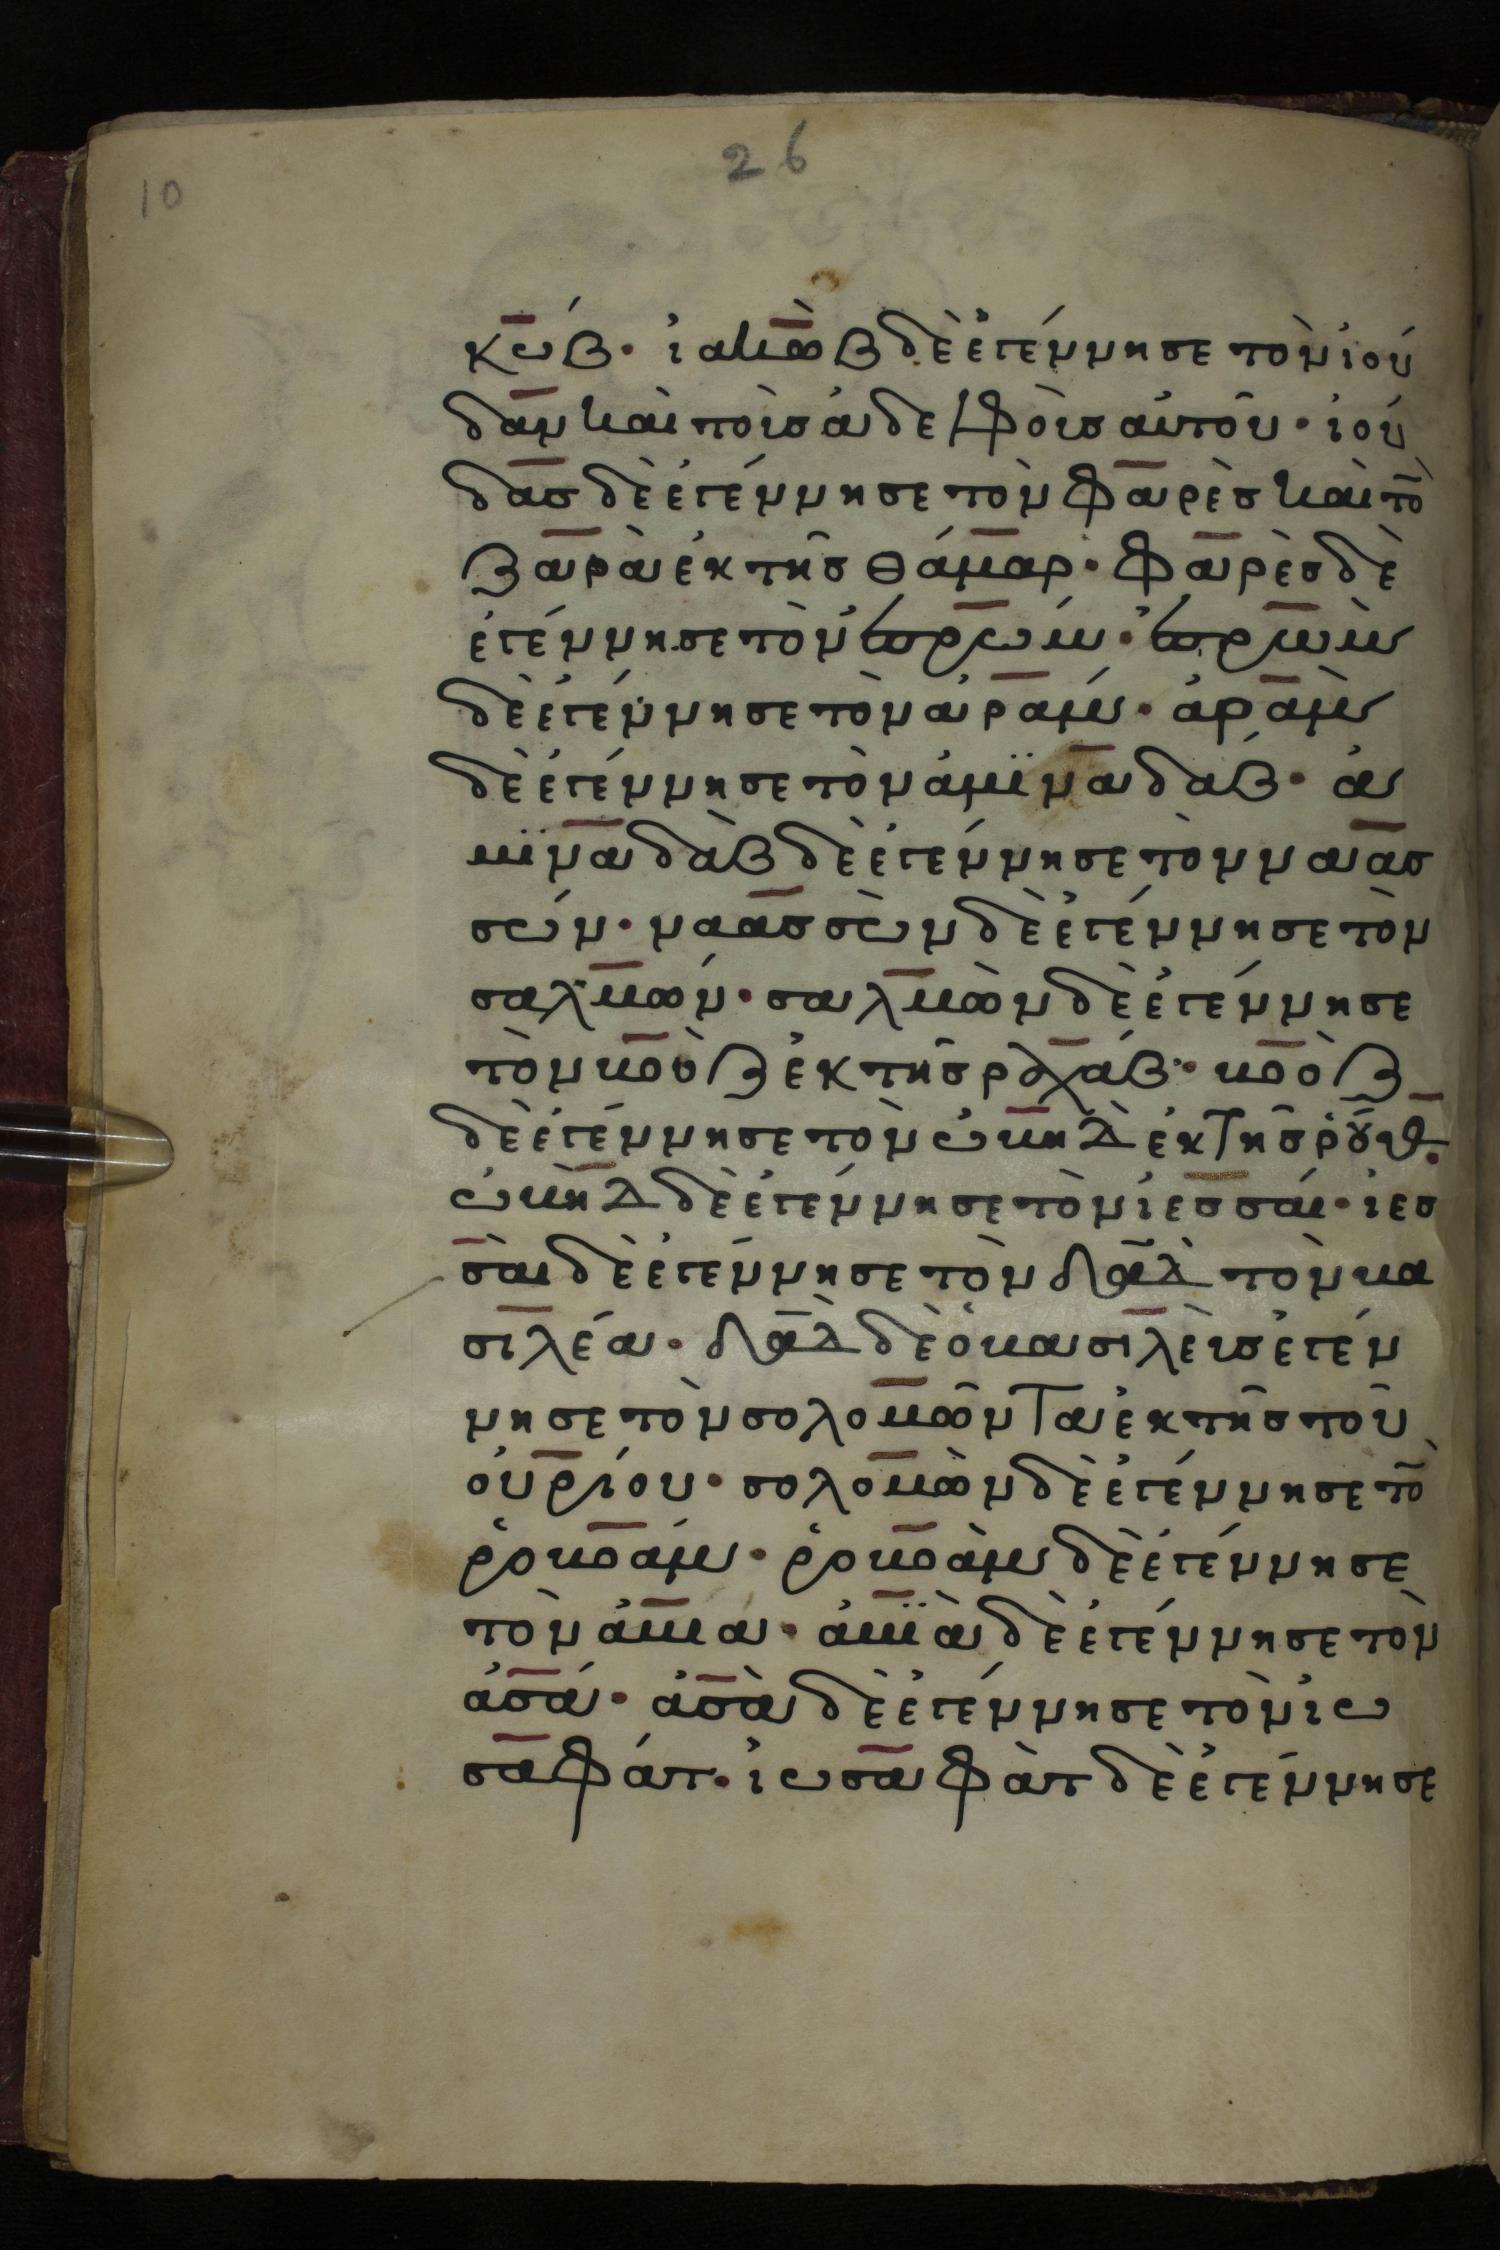 10
26
κώβ· ἰακὼβ δὲ ἐγέννησε τὸν ἰού
δαν καὶ τοὺς ἀδελφοὺς αὐτοῦ· ἰού
δας δὲ ἐγέννησε τὸν φαρὲς καὶ τὸ̄
ζαρὰ ἐκ τῆς θάμαρ· φαρὲς δὲ
ἐγέννησε τὸν ἐσρώμ· ἐσρὼμ
δὲ ἐγέννησε τὸν ἀράμ· ἀρὰμ
δὲ ἐγέννησε τὸν ἀμϊναδάβ· ἀ
μϊναδὰβ δὲ ἐγέννησε τὸν ναασ
σών· ναασσὼν δὲ ἐγέννησε τὸν
σαλμών· σαλμὼν δὲ ἐγέννησε
τὸν βοὸζ ἐκ τῆς ραχάβ· βοὸζ
δὲ ἐγέννησε τὸν ὠβὴδ ἐκ τῆς ῥούθ·
ὠβὴδ δὲ ἐγέννησε τὸν ἰεσσαί· ἰεσ
σαὶ δὲ ἐγέννησε τὸν δα̅δ τὸν βα
σιλέα· δα̅δ δὲ ὁ βασιλεὺς ἐγέν
νησε τὸν σολομῶντα ἐκ τῆς τοῦ
οὐρίου· σολομὼν δὲ ἐγέννησε τὸ̄
ῥοβοάμ· ῥοβοὰμ δὲ ἐγέννησε
τὸν ἀβιά· ἀβϊὰ δὲ ἐγέννησε τὸν
ἀσά· ἀσὰ δὲ ἐγέννησε τὸν ἰω
σαφάτ· ἰωσαφὰτ δὲ ἐγέννησε